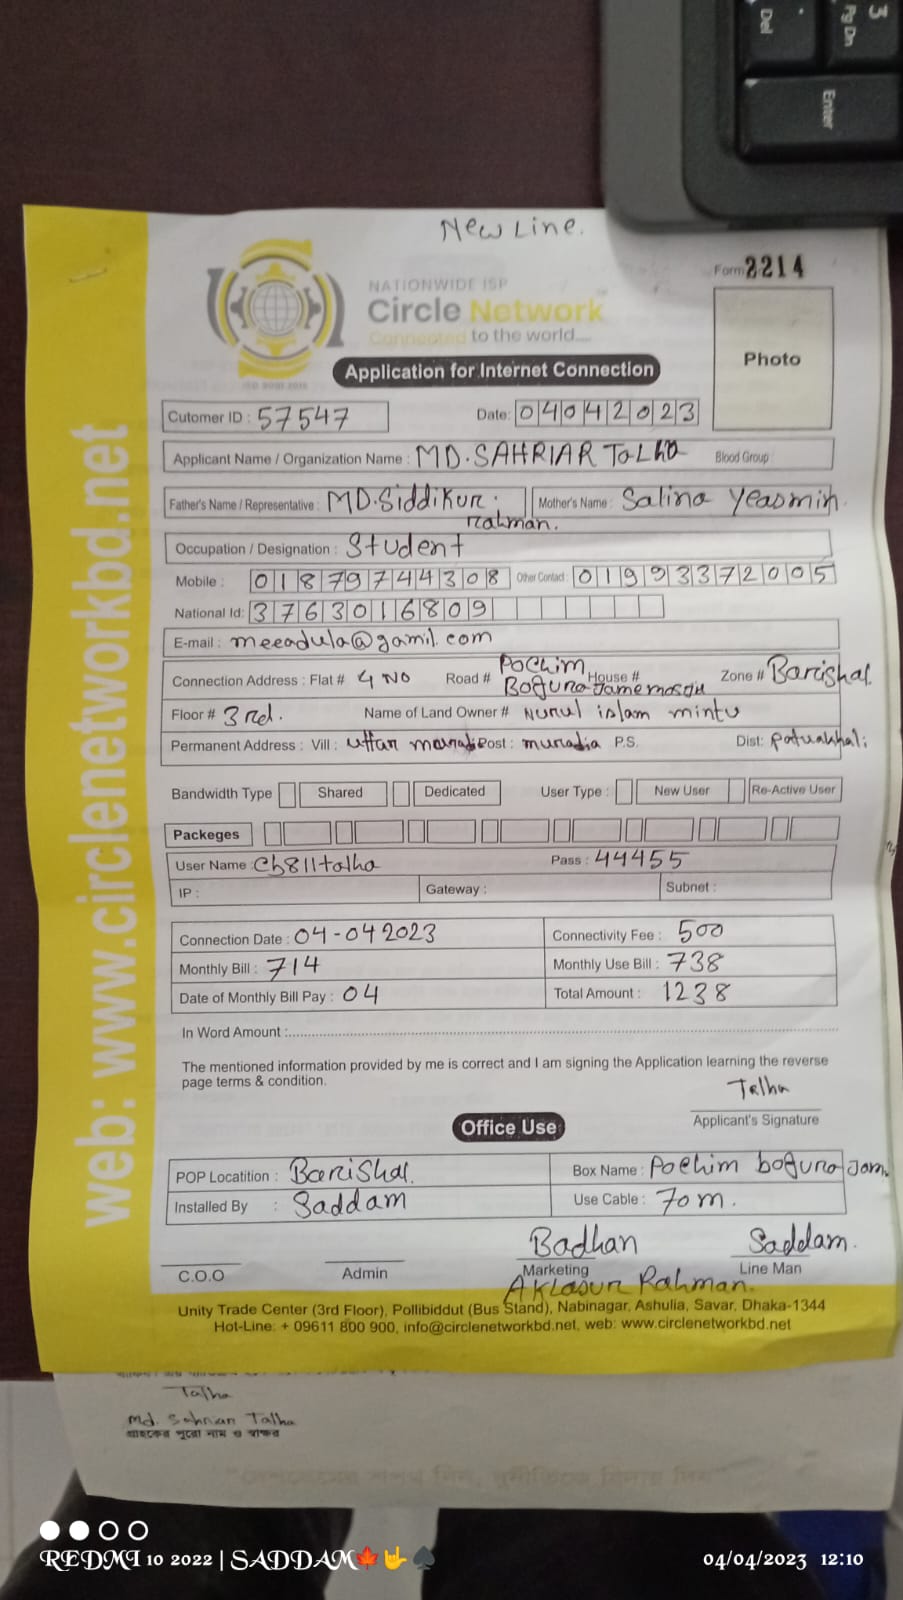 3
Pg Dn
Del
Enter
New Line.
Form 2214
NATIONWIDE ISP
Circle Network
Connected to the world....
ISO 9001:2015
Photo
Application for Internet Connection
Cutomer ID : 57547 Date: 04042023
Applicant Name / Organization Name : MD. SAHRIAR TaLha Blood Group :
Father's Name / Representative : MD. Siddikur rahman. Mother's Name : Salina Yeasmin.
Occupation / Designation : Student
Mobile : 01879744308 Other Contact : 01993372005
National Id: 3763016809
E-mail : meeadula@gamil.com
Connection Address : Flat # 4 NO Road # Pochim Bogura Jame mosjid House # Zone # Barishal
Floor # 3rd. Name of Land Owner # Nurul islam mintu
Permanent Address : Vill : uttar Post : muradia P.S. Dist: Patuakhali
Bandwidth Type Shared Dedicated User Type : New User Re-Active User
Packeges
User Name : Pass : 44455
IP : Gateway : Subnet :
Connection Date : 04-042023 Connectivity Fee : 500
Monthly Bill : 714 Monthly Use Bill : 738
Date of Monthly Bill Pay : 04 Total Amount : 1238
In Word Amount :
The mentioned information provided by me is correct and I am signing the Application learning the reverse
page terms & condition.
Talha
Applicant's Signature
Office Use
POP Locatition : Barishal. Box Name : Pochim bogura Jam.
Installed By : Saddam Use Cable : 70m.
Badhan Saddam.
C.O.O Admin Marketing Line Man
Aklasur Rahman.
Unity Trade Center (3rd Floor), Pollibiddut (Bus Stand), Nabinagar, Ashulia, Savar, Dhaka-1344
Hot-Line: + 09611 800 900, info@circlenetworkbd.net, web: www.circlenetworkbd.net
web: www.circlenetworkbd.net
Talha
Md. Sahriar Talha
গ্রাহকের পুরো নাম ও স্বাক্ষর
REDMI 10 2022 | SADDAM🍁🤟♠
04/04/2023 12:10